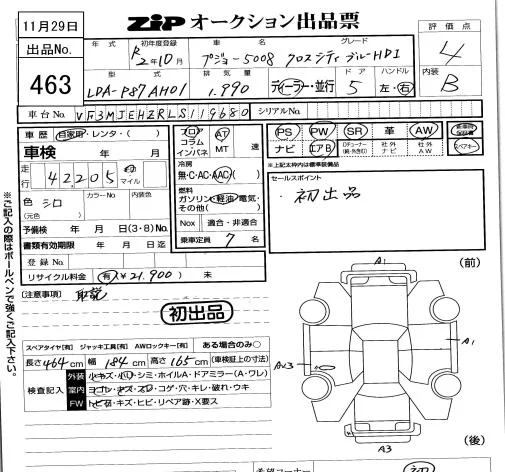 11月29日
出品No.
463
ZIP オークション出品票
評価点
4
内装
B
年式
初年度登録
車名
グレード
R2年10月
プジョー5008 クロスシティ ブルーHDI
型式
排気量
ドア
ハンドル
LDA-P87AH01
1.990
ディーラー・並行
5
左・右
車台No. VF3MJEHZRLS119680
シリアルNo.
車歴 自家用・レンタ・( )
車検 年 月
走行 42205 km マイル
色 シロ
(元色 )
カラーNo.
内装色
予備検 年 月 日(3・8)No.
書類有効期限 年 月 日迄
登録No.
リサイクル料金 有 ¥21.900) 未
フロア
コラム
インパネ
AT
MT
速
冷房
無・C・AC・AAC( )
燃料
ガソリン・軽油・電気・
その他( )
Nox 適合・非適合
乗車定員 7 名
PS PW SR 革 AW
ナビ エアB
社外ナビ
社外AW
スペアキー
※上記太枠内は標準装備品
セールスポイント
・初出品
[注意事項] 取説
初出品
スペアタイヤ[有] ジャッキ工具[有] AWロックキー[有] ある場合のみ○
長さ464cm 幅184cm 高さ165cm (車検証上の寸法)
検査記入
外装 小キズ・小凹・シミ・ホイルA・ドアミラー(A・ワレ)
室内 ヨゴレ・キズ・スレ・コゲ・穴・キレ・破れ・ウキ
FW トビ石・キズ・ヒビ・リペア跡・X要ス
※ご記入の際はボールペンで強くご記入下さい。
(前)
A1
A1
AX3
A3
(後)
希望コーナー
初